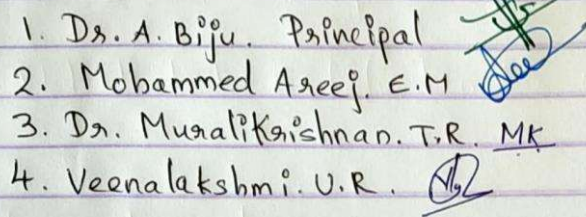 1. Dr. A. Biju. Principal
2. Mohammed Areej. E.M
3. Dr. MuraliKrishnan. T.R. MK
4. Veenalakshmi. U.R.